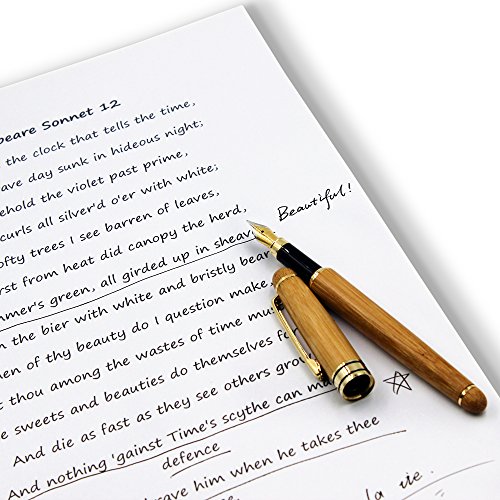 peare Sonnet 12
the clock that tells the time,
ave day sunk in hideous night;
ehold the violet past prime,
curls all silver'd o'er with white;
ofty trees I see barren of leaves,
rst from heat did canopy the herd,
Beautiful!
mmer's green, all girded up in sheav
n the bier with white and bristly bear
en of thy beauty do I question make
t thou among the wastes of time mus
e sweets and beauties do themselves for
And die as fast as they see others gro
And nothing 'gainst Time's scythe can ma
defence
rave him when he takes thee
la vie.